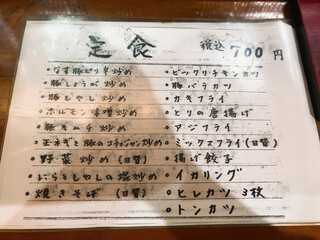 定食 税込 700円
・なす豚ピリ辛炒め
・豚しょうが炒め
・豚もやし炒め
・ホルモン味噌炒め
・豚キムチ炒め
・玉ネギと豚のコチュジャン炒め
・野菜炒め (日替)
・にらともやしの塩炒め
・焼きそば (日替)
・ビックリチキンカツ
・豚バラカツ
・カキフライ
・とりの唐揚げ
・アジフライ
・ミックスフライ(日替)
・揚げ餃子
・イカリング
・ヒレカツ 3枚
・トンカツ